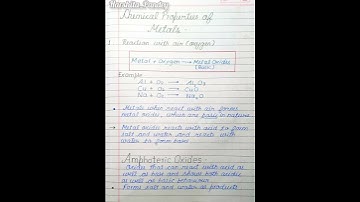 Harshita Pandey
Chemical Properties of
Metals -
1 Reaction with air (oxygen)
Metal + Oxygen → Metal Oxides
(Basic)
Example
Al + O₂ → Al₂O₃
Cu + O₂ → CuO
Na + O₂ → Na₂O
• Metals when react with air forms
metal oxides, which are basic in nature
• Metal oxides reacts with acid to form
salt and water and reacts with
water to form bases
Amphoteric Oxides -
Oxides that can react with acid as
well as base and shows both acidic
as well as basic behaviour
• Forms salt and water as products